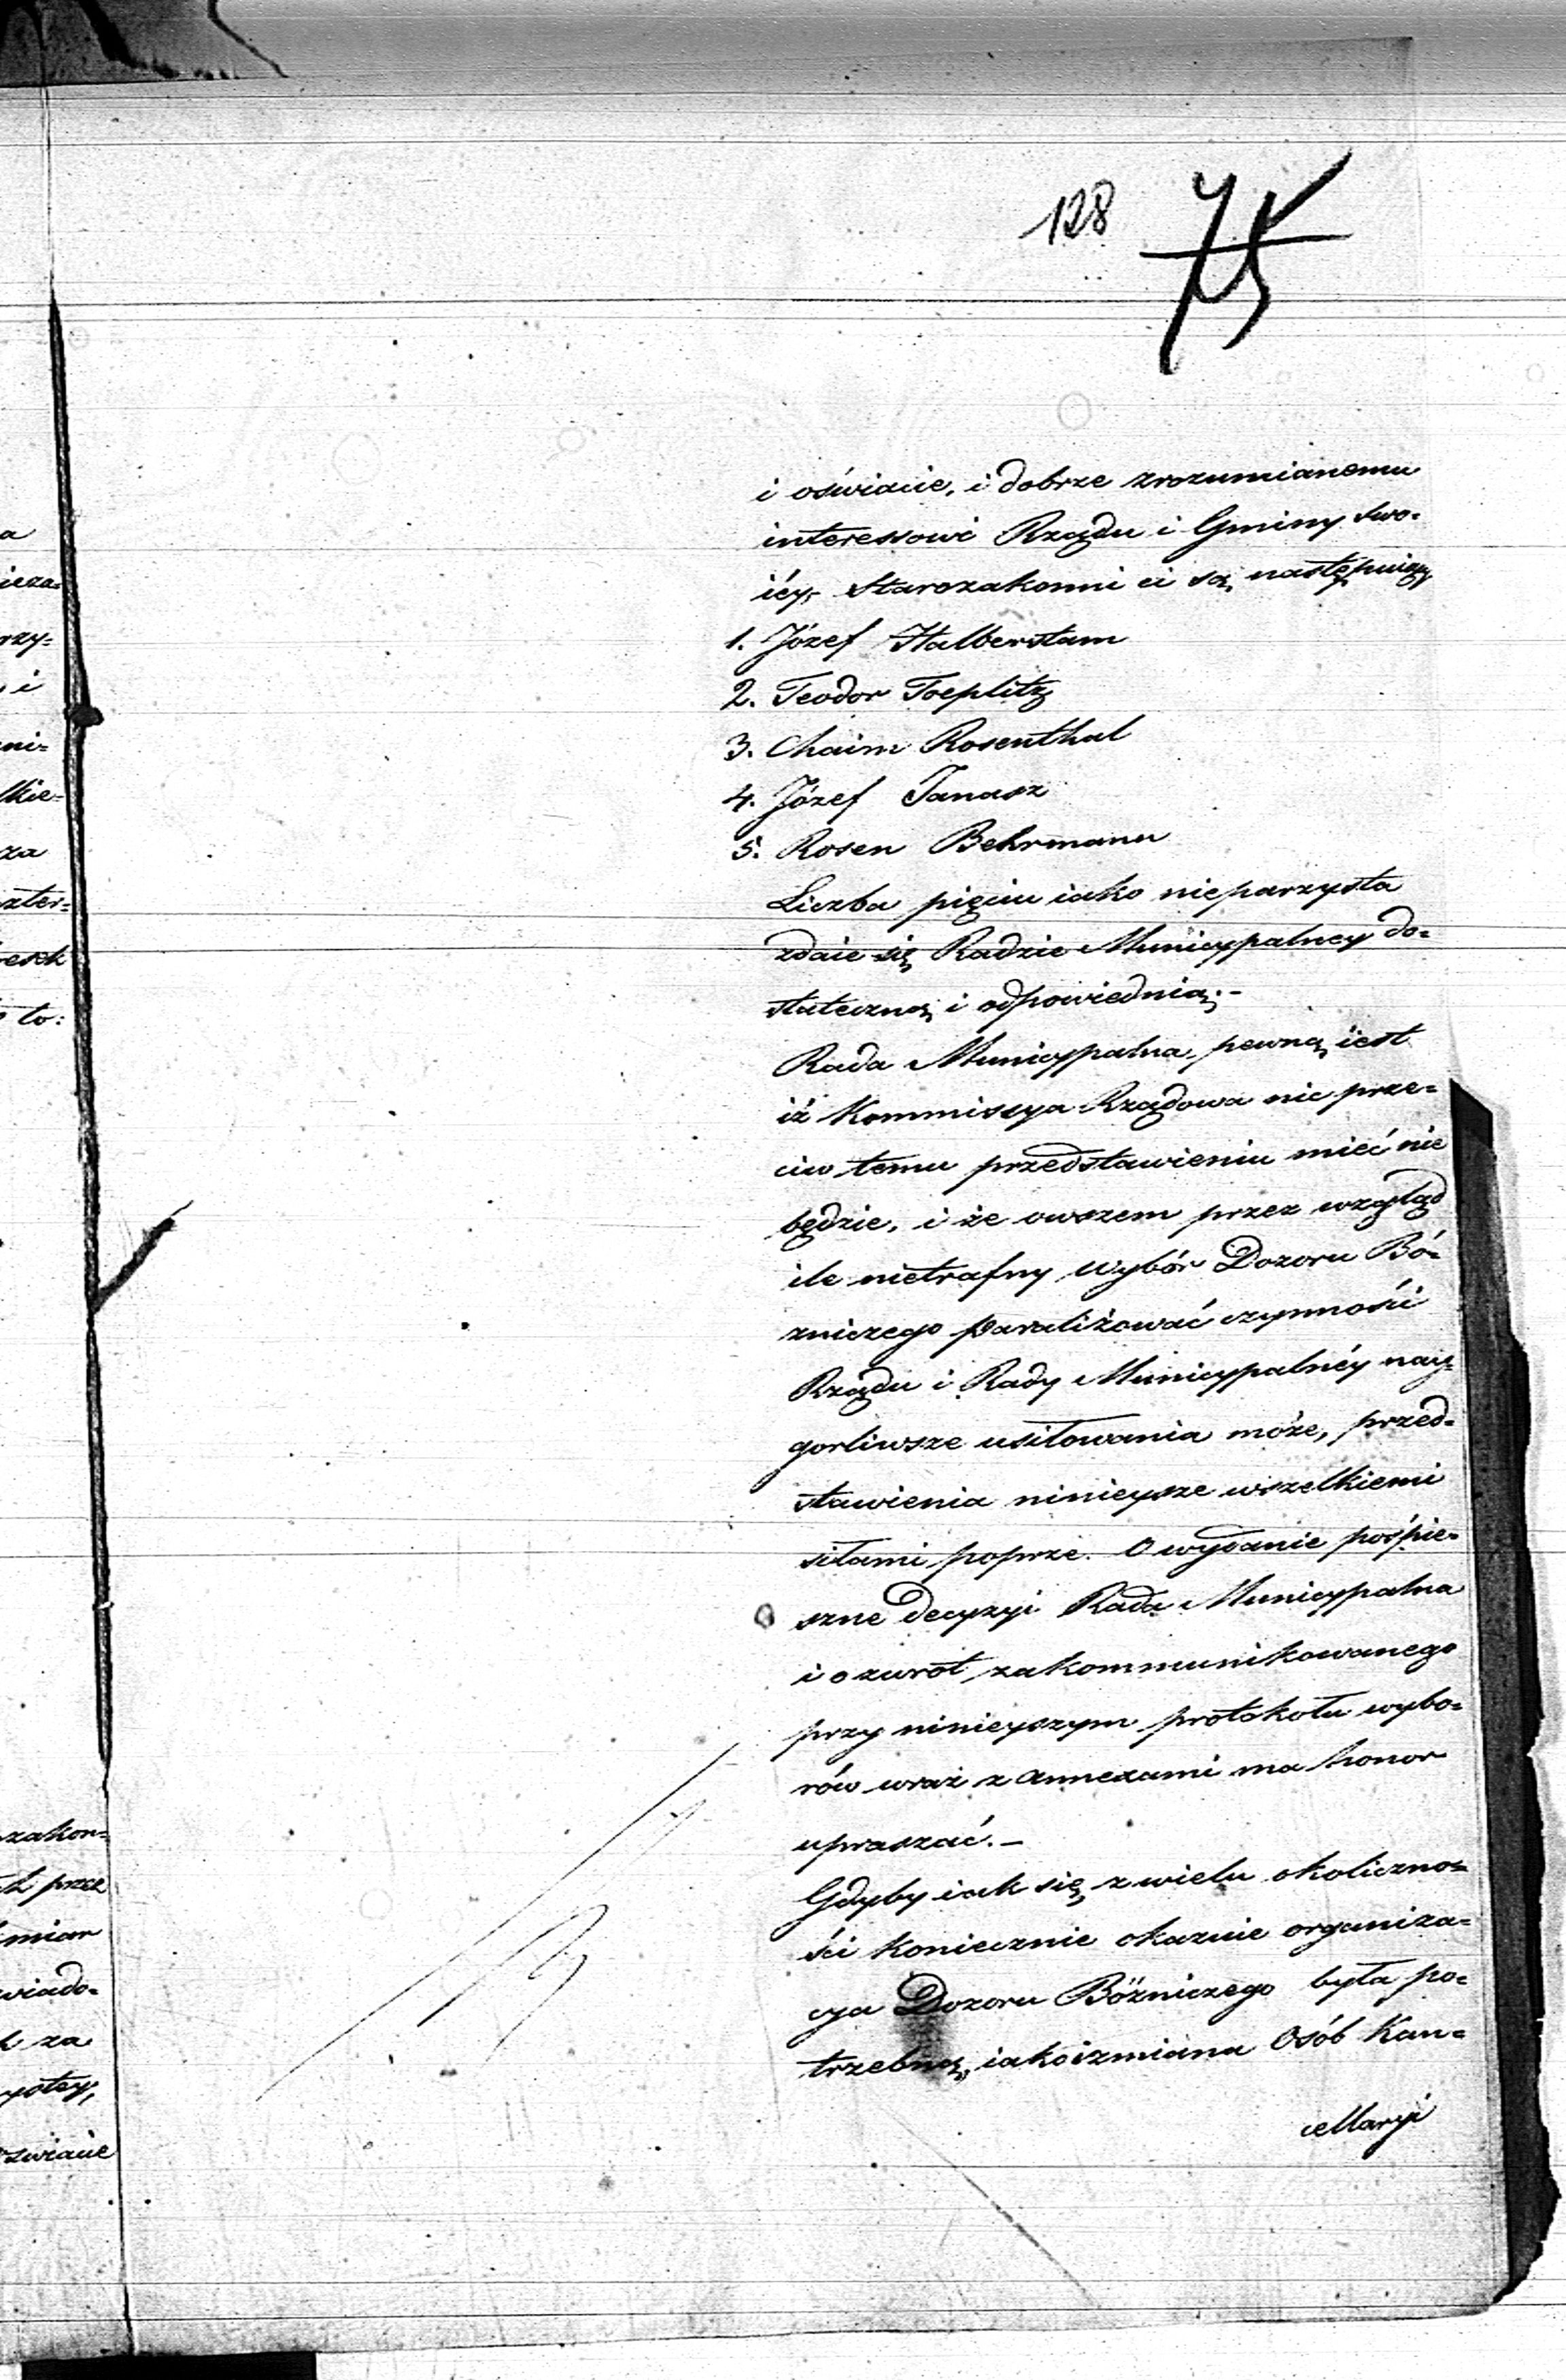 128 75
i oświacie, i dobrze zrozumianemu
interessowi Rządu i Gminy swo=
iéy, Starozakonni ci są następuiący
1. Józef Halberstam
2. Teodor Toeplitz
3. Chaim Rosenthal
4. Józef Janasz
5. Rosen Behrmann
Liczba pięciu iako nieparzysta
zdaie się Radzie Municypalney do=
stateczną i odpowiednią.-
Rada Municypalna pewną iest
iż Kommissya Rządowa nic prze=
ciw temu przedstawieniu mieć nie
będzie, i że owszem przez wzgląd
ile nietrafny wybór Dozoru Bó=
zniczego paraliżować czynności
Rządu i Rady Municypalnéy nay=
gorliwsze usiłowania może, przed=
stawienia ninieysze wszelkiemi
siłami poprze. O wydanie pośpie=
szne decyzyi Rada Municypalna
i o zwrot zakommunikowanego
przy ninieyszym protokołu wybo=
rów wraz z annexami ma honor
upraszać.-
Gdyby iak się z wielu okoliczno=
ści koniecznie okazuie organiza=
cya Dozoru Bózniczego była po=
trzebną, iako i zmiana Osób Kan=
cellaryi
a
ieza=
rzy=
i
ni=
lkie=
za
zter=
esch
to:
zakon=
ch przez
miar
wiado=
h za
ystey,
oświacie